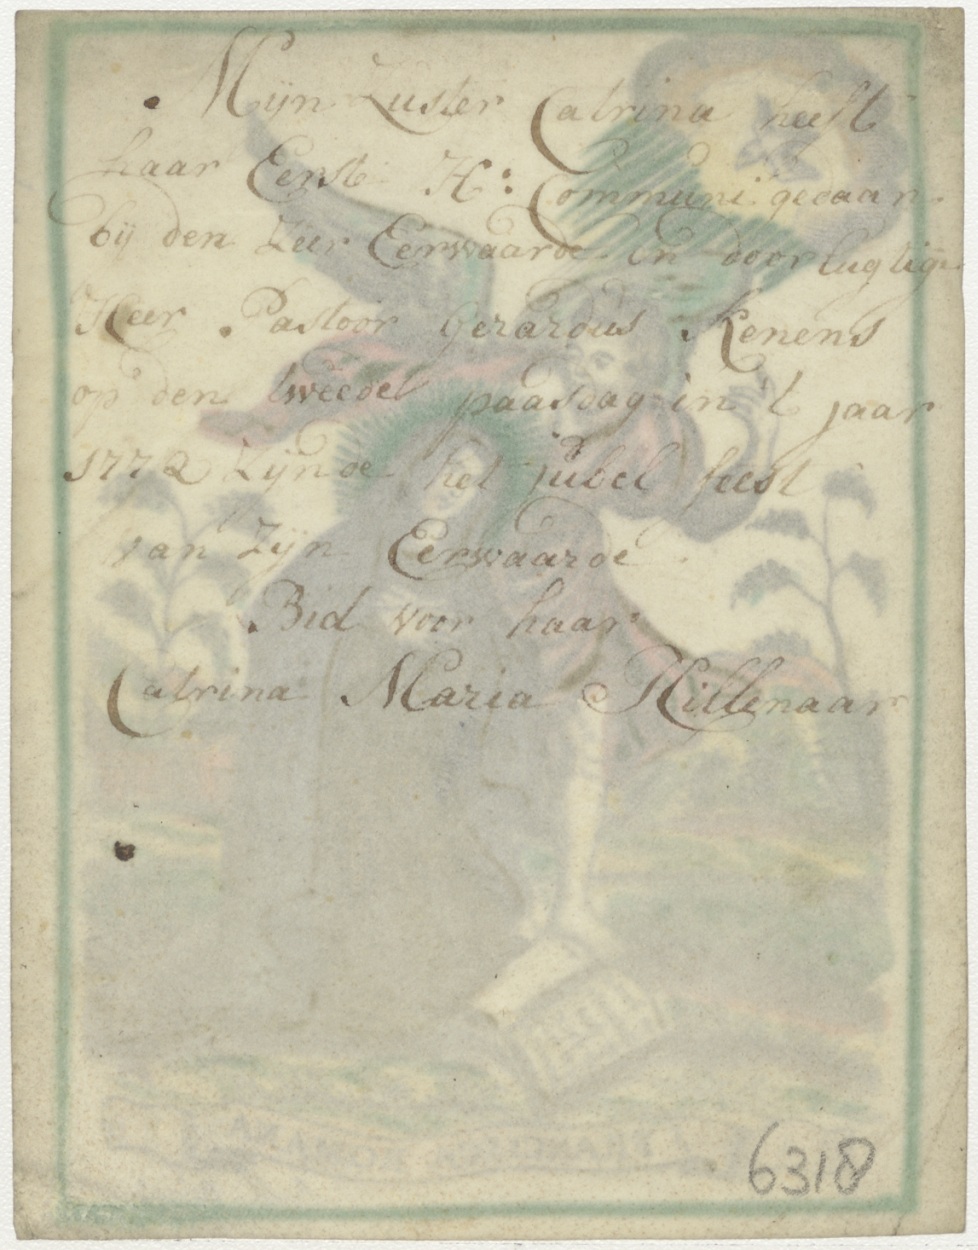 Mijn Zuster Catrina heeft
haar Eerste H: Communi gedaan.
bij den Zeer Eerwaarde en doorlugtige
Heer Pastoor Gerardus Kenens
op den tweedel paasdag in 't jaar
1772 Zijnde het jubel feest
van Zijn Eerwaarde
Bid voor haar
Catrina Maria Hillenaar
6318